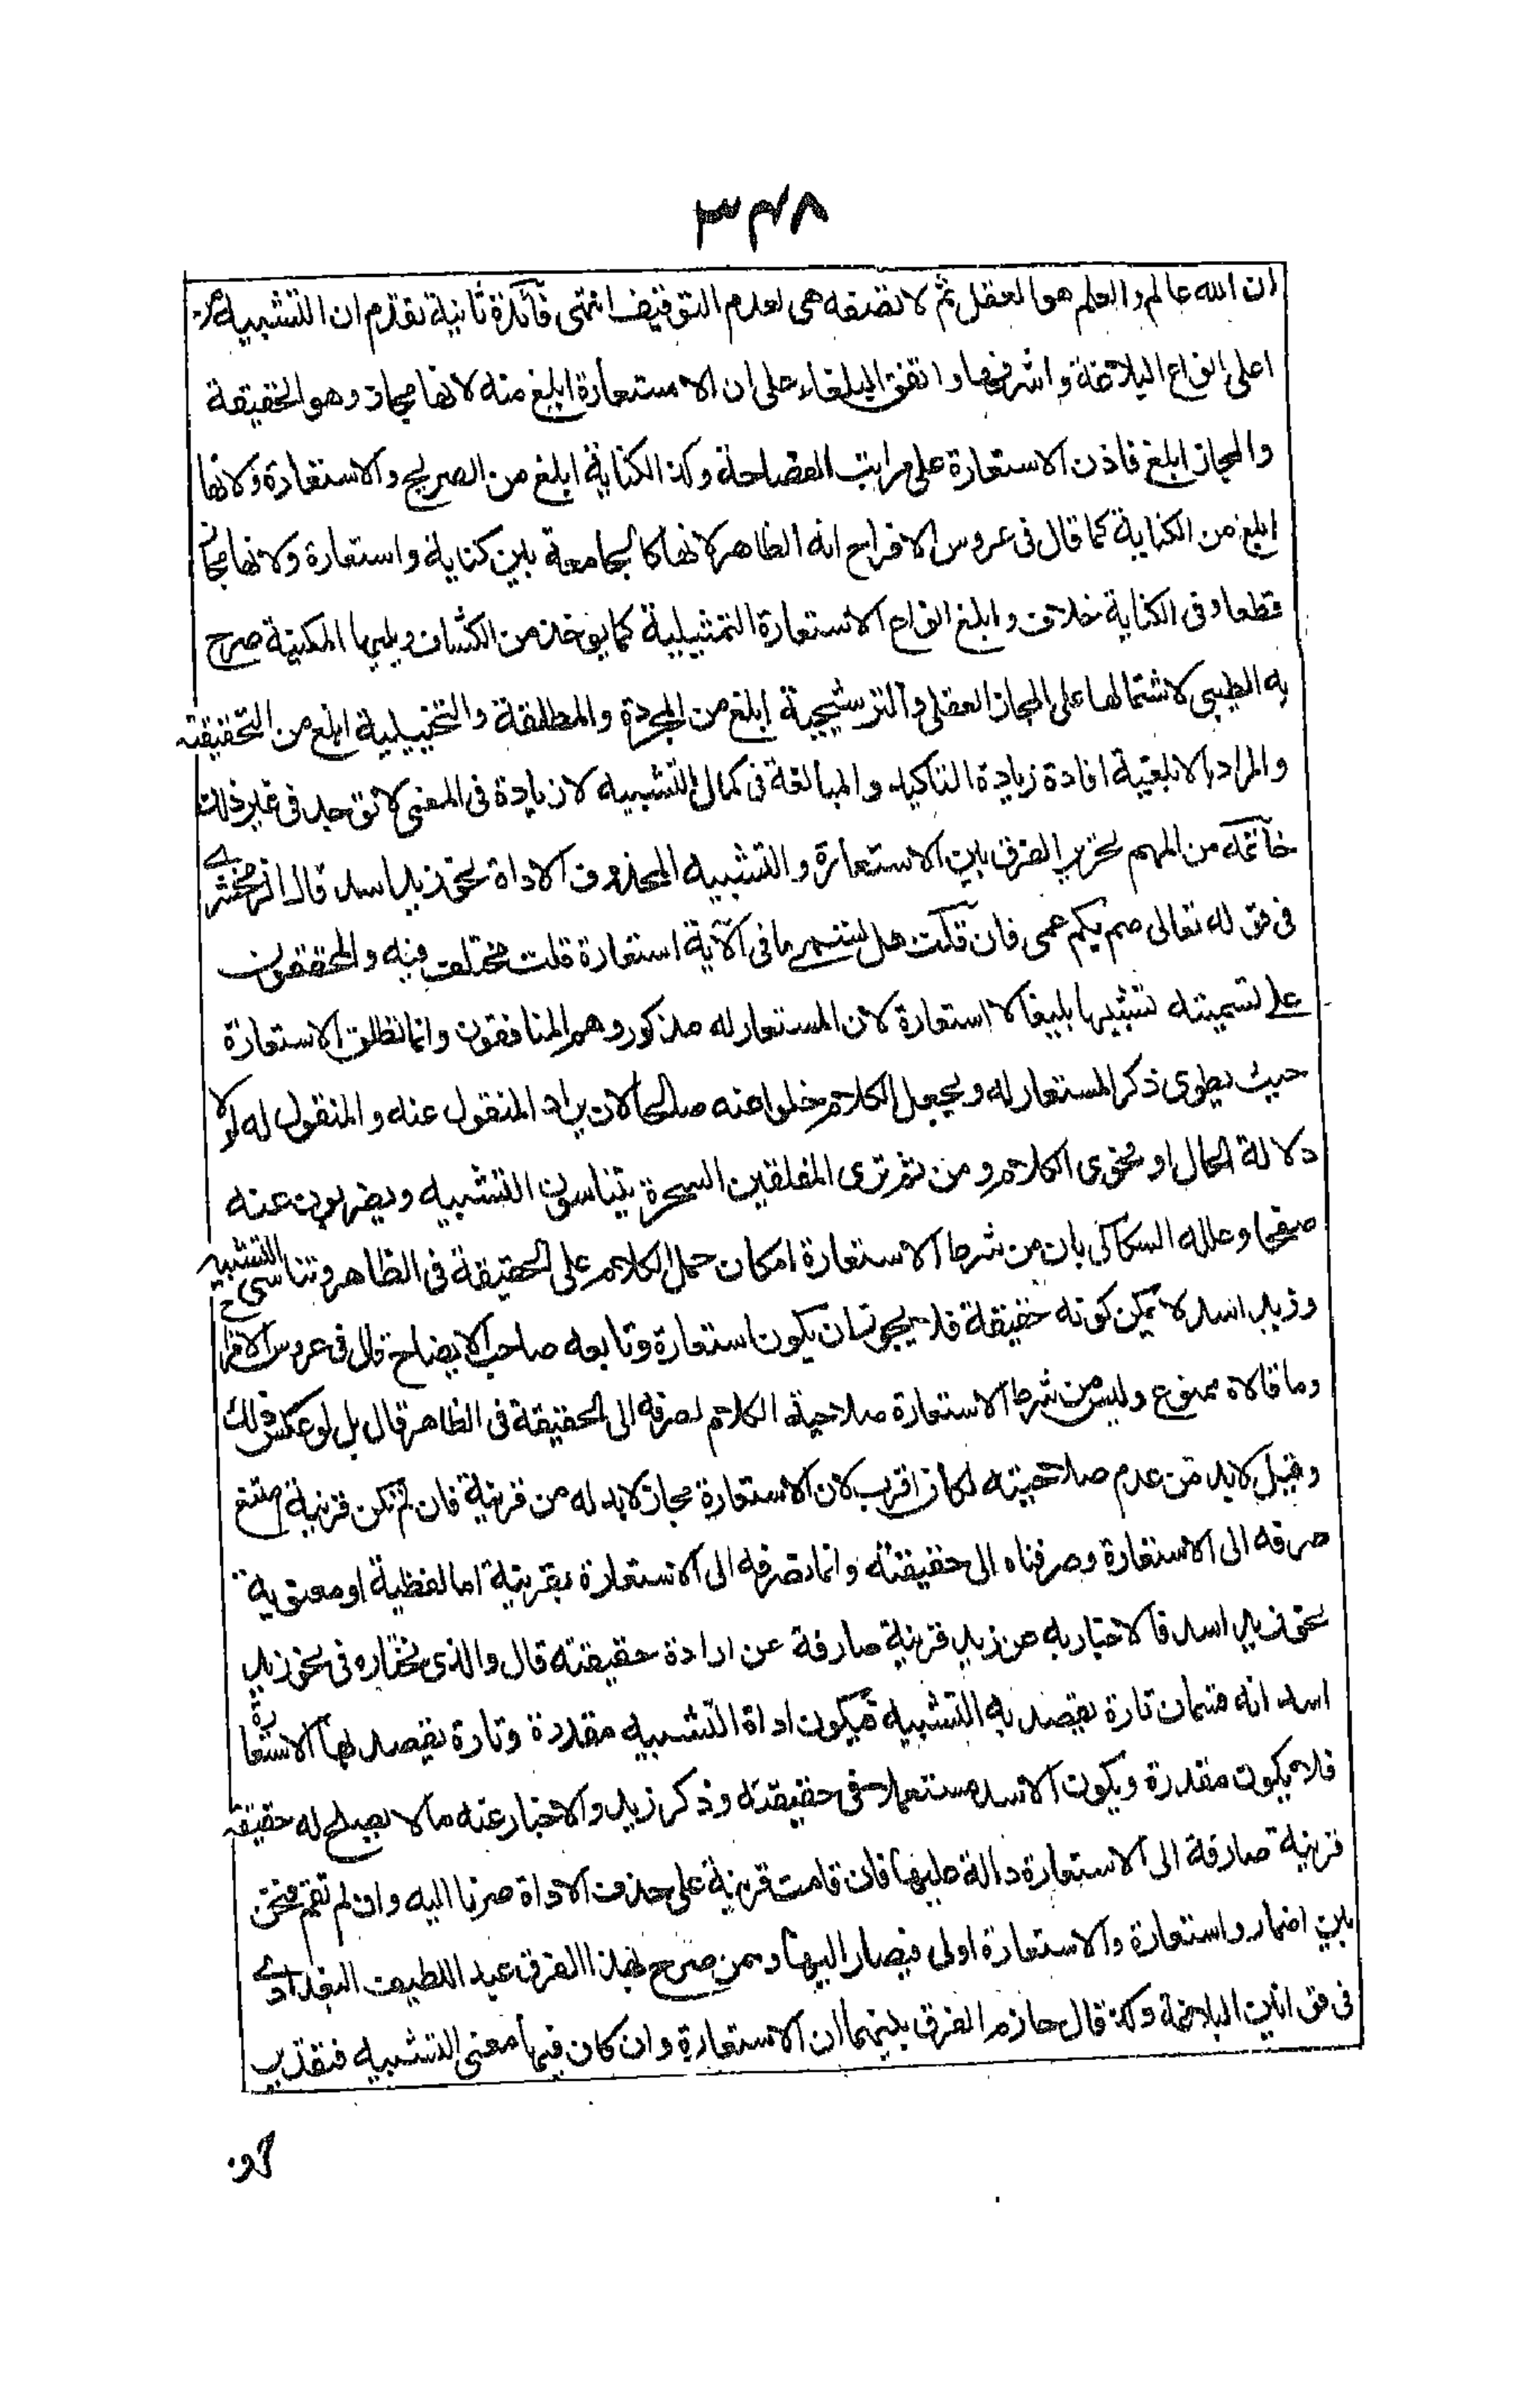 ٣٤٨
ان الله عالم والعلم هو العقل ثم لا نصفه هى لعدم التوقيف انتهى فآئدة ثانية تقدم ان التشبيه من
اعلى انواع البلاغة واشرفها واتفق البلغاء على ان الاستعارة ابلغ منه لانها مجاز وهو الحقيقة
والمجاز ابلغ فاذن الاستعارة على مراتب الفصاحة وكذا الكناية ابلغ من الصريح والاستعارة ولانها
ابلغ من الكناية كما قال فى عروس الافراح انه الظاهر لانها كالجامعة بين كناية واستعارة ولانها مجاز
قطعا وفى الكناية خلاف وابلغ انواع الاستعارة التمثيلية كما يوخذ من الكشاف ويليها المكنية صرح
به الطيبى لاشتمالها على المجاز العقلى والترشيحية ابلغ من المجردة والمطلقة والتخييلية ابلغ من التحقيقية
والمراد بالابلغية افادة زيادة التاكيد والمبالغة فى كمال التشبيه لا زيادة فى المعنى لا توجد فى غير ذلك
خاتمة من المهم تحرير الفرق بين الاستعارة والتشبيه المحذوف الاداة نحو زيد اسد قال الزمخشرى
فى قوله تعالى صم بكم عمى فان قلت هل يسمى ما فى الآية استعارة قلت مختلف فيه والمحققون
على تسميته تشبيها بليغا لا استعارة لان المستعار له مذكور وهم المنافقون وانما تطلق الاستعارة
حيث يطوى ذكر المستعار له ويجعل الكلام خلوا عنه صالحا لان يراد المنقول عنه والمنقول له لولا
دلالة الحال او فحوى الكلام ومن ثم ترى المفلقين السحرة يتناسون التشبيه ويضربون عنه
صفحا وعلله السكاكى بان من شرط الاستعارة امكان حمل الكلام على الحقيقة فى الظاهر وتناسى التشبيه
وزيد اسد لا يمكن كونه حقيقة فلا يجوز ان يكون استعارة وتابعه صاحب الايضاح قال فى عروس الافراح
وما قالاه ممنوع وليس من شرط الاستعارة صلاحية الكلام لصرفه الى الحقيقة فى الظاهر قال بل لو عكس ذلك
وقيل لابد من عدم صلاحيته لكان اقرب لان الاستعارة مجاز لابد له من قرينة فان لم تكن قرينة امتنع
صرفه الى الاستعارة وصرفناه الى حقيقته وانما نصرفه الى الاستعارة بقرينة اما لفظية او معنوية
نحو زيد اسد فالاخبار به عن زيد قرينة صارفة عن ارادة حقيقته قال والذى نختاره فى نحو زيد
اسد انه قسمان تارة يقصد به التشبيه فيكون اداة التشبيه مقدرة وتارة يقصد بها الاستعارة
فلا يكون مقدرة ويكون الاسد مستعملا فى حقيقته وذكر زيد والاخبار عنه ما لا يصلح له حقيقة
قرينة صارفة الى الاستعارة دالة عليها فان قامت قرينة على حذف الاداة صرنا اليه وان لم تقم فنحن
بين اضمار واستعارة والاستعارة اولى فيصار اليها وممن صرح بهذا الفرق عبد اللطيف البغدادى
فى قوانين البلاغة وكذا قال حازم الفرق بينهما ان الاستعارة وان كان فيها معنى التشبيه فتقدير